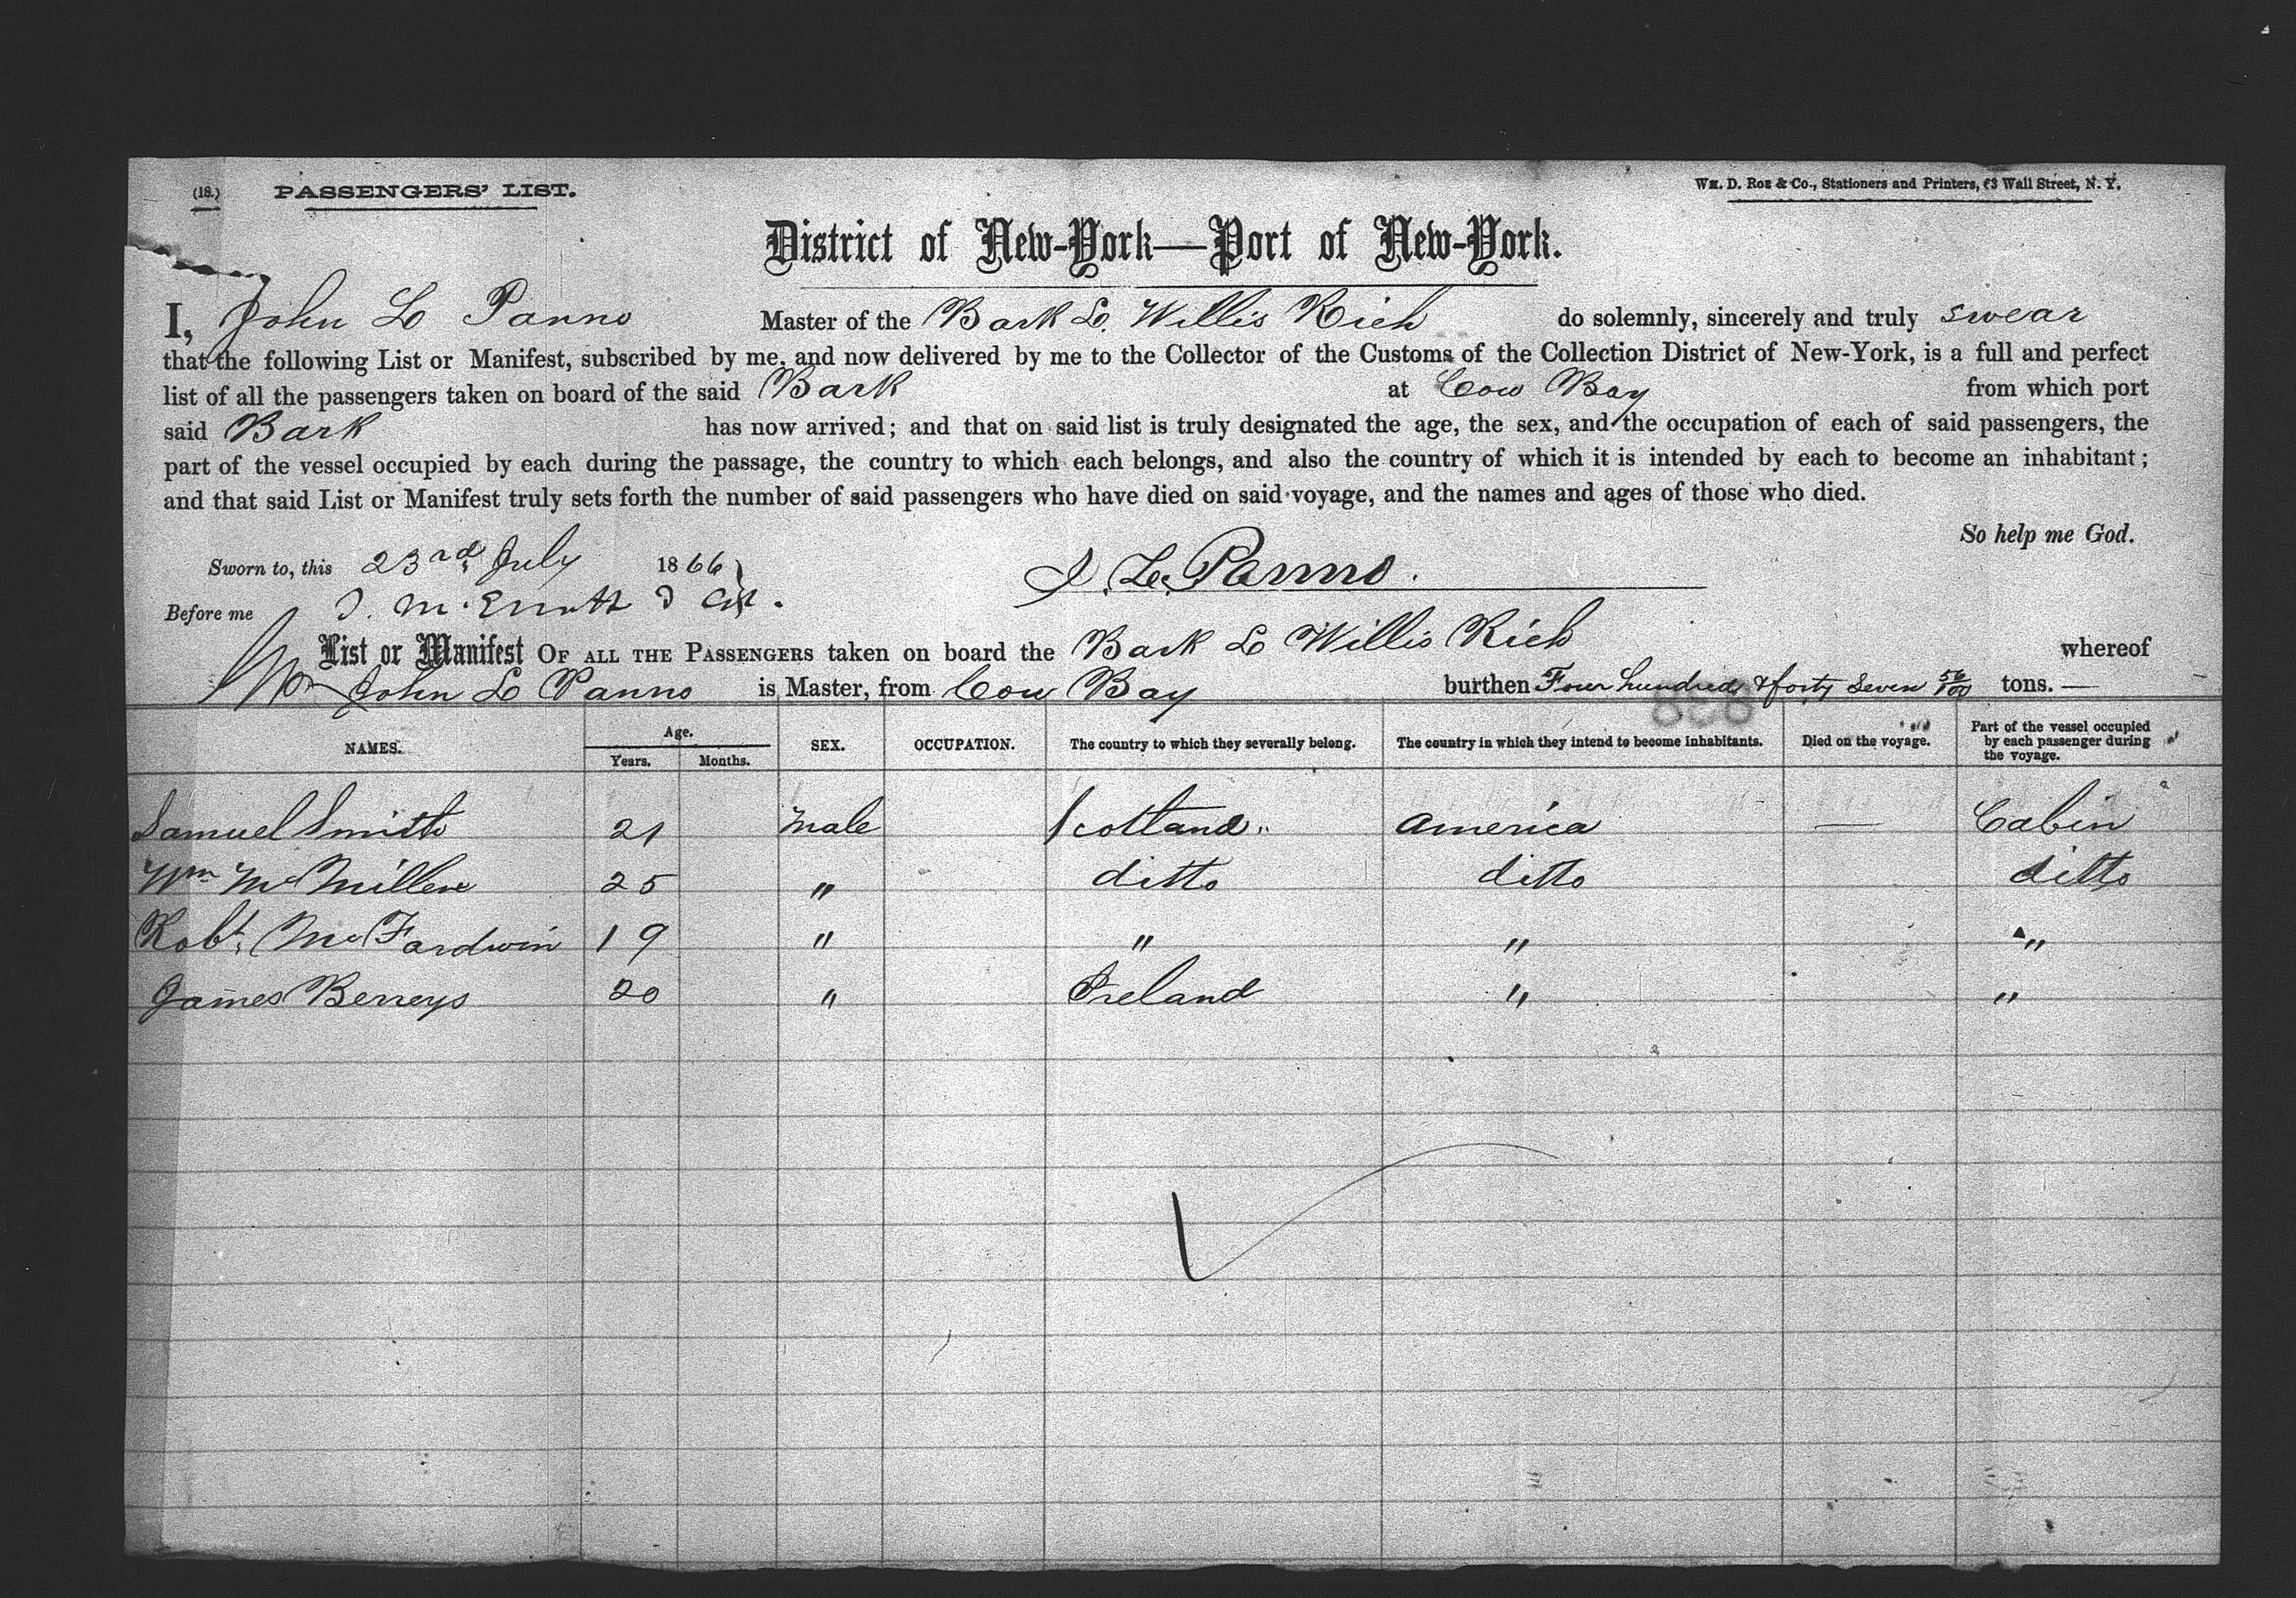 (18.) PASSENGERS' LIST. Wm. D. Roe & Co., Stationers and Printers, 63 Wall Street, N. Y.
District of New-York—Port of New-York.
I, John Le Panno Master of the Bark L. Willis Rich do solemnly, sincerely and truly swear
that the following List or Manifest, subscribed by me, and now delivered by me to the Collector of the Customs of the Collection District of New-York, is a full and perfect
list of all the passengers taken on board of the said Bark at Cow Bay from which port
said Bark has now arrived; and that on said list is truly designated the age, the sex, and the occupation of each of said passengers, the
part of the vessel occupied by each during the passage, the country to which each belongs, and also the country of which it is intended by each to become an inhabitant;
and that said List or Manifest truly sets forth the number of said passengers who have died on said voyage, and the names and ages of those who died.
So help me God.
Sworn to, this 23rd July 1866
J. Le Panno.
Before me
List or Manifest OF ALL THE PASSENGERS taken on board the Bark L Willis Rich whereof
John Le Panno is Master, from Cow Bay burthen Four hundred & forty Seven 56/100 tons.—
NAMES. Age. Years. Months. SEX. OCCUPATION. The country to which they severally belong. The country in which they intend to become inhabitants. Died on the voyage. Part of the vessel occupied by each passenger during the voyage.
Samuel Smith 21 Male Scotland America — Cabin
Wm McMillen 25 " ditto ditto ditto
Robt. McFardwin 19 " " " "
James Berreys 20 " Ireland " "